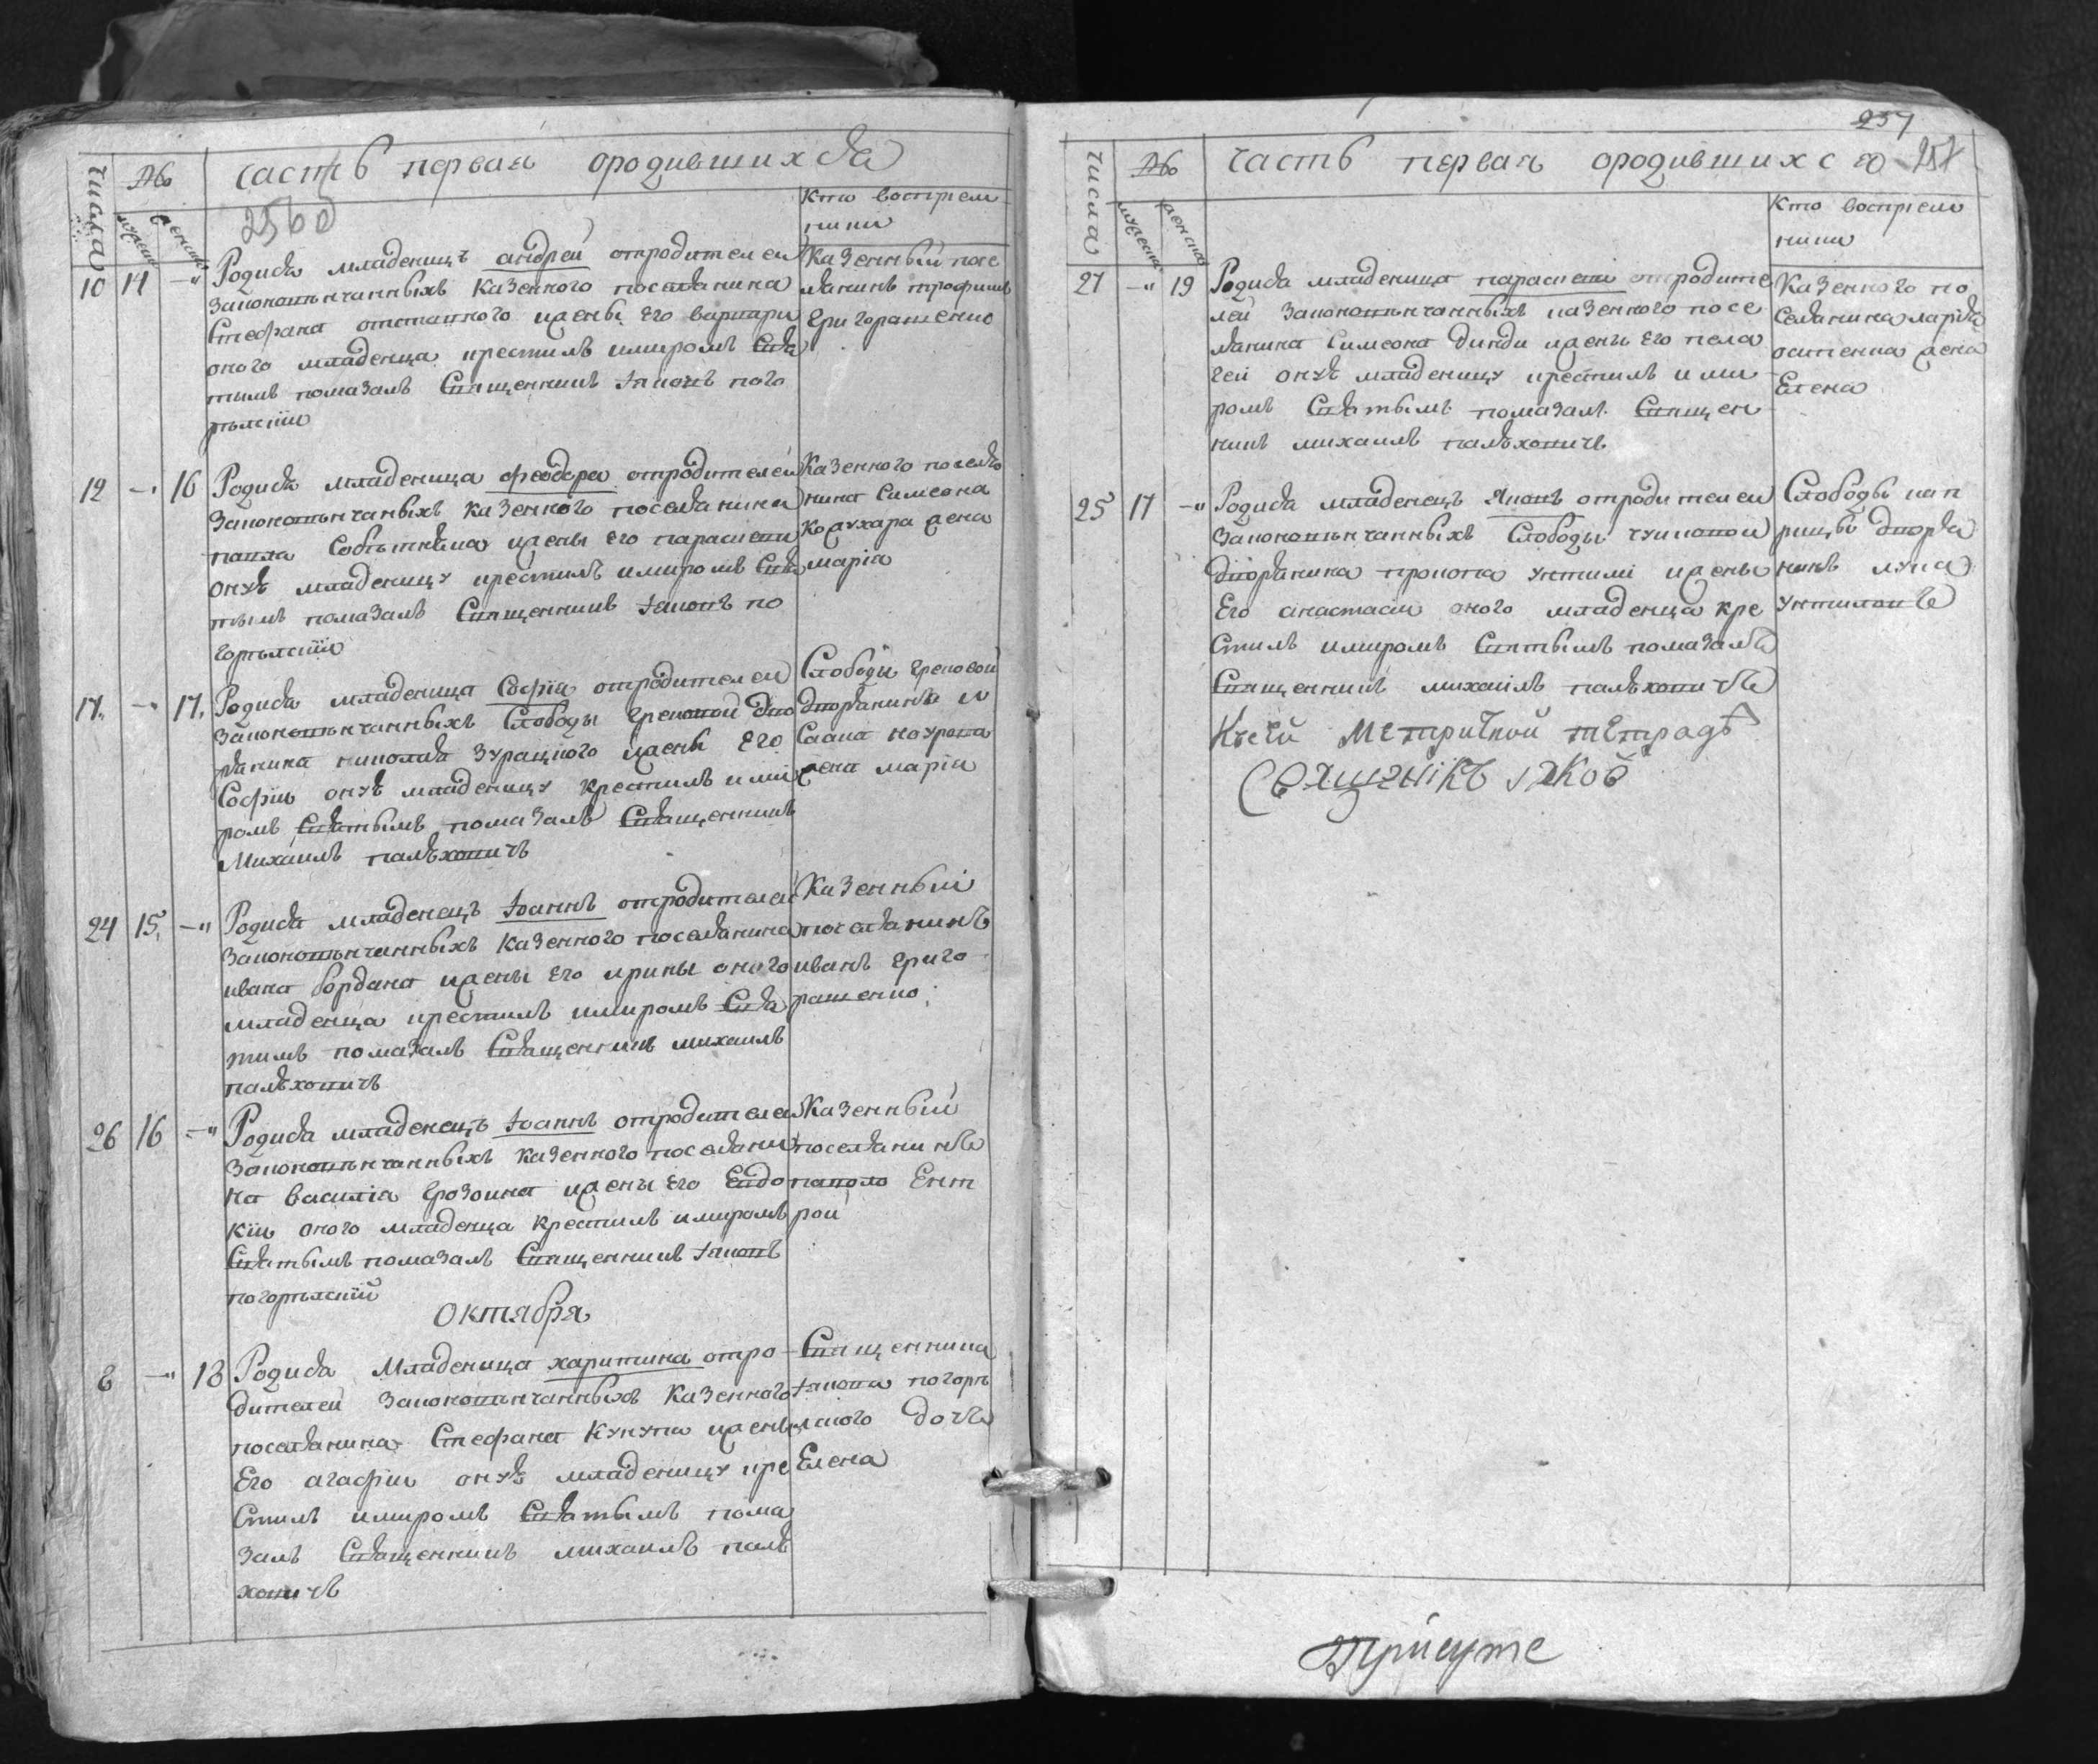 числа
№
мужеска
женска
часть первая ородившихся
256 о
Кто восприем
ники
10 14 -"
Родися младенецъ андрей отродителей
законовѣнчанныхъ казенного поселянина
Стефана отставного жены его варвари
оного младенца крестилъ имиромъ Свя
тымъ помазалъ Священникъ Іяковъ пого
рѣлскій
Казенный посе
лянинъ трофимъ
Григорашенко
12 -" 16
Родися младеница феодора отродителей
законовѣнчаныхъ казенного поселянина
павла Событкѣна жены его параскеви
онуя младеницу крестилъ имиромъ Свя
тымъ помазалъ Священникъ Іяковъ по
горѣлскій
Казенного поселя
нина Симеона
Кожухара жена
марія
17. -" 17.
Родися младеница Софія отродителей
законовѣнчанныхъ Слободы Грековой дво
рянина николая Зурацкого жены Его
Софіи онуя младеницу крестилъ ими
ромъ Святымъ помазалъ Священникъ
Михаилъ палѣховичъ
Слободи грековой
дворянинъ и
Саака
жена марія
24 15, -"
Родися младенецъ Іоаннъ отродителей
законовѣнчанныхъ казенного поселянина
ивана бордана жены Его ирины оного
младенца крестилъ имиромъ Свя
тимъ помазалъ Священникъ михаилъ
палѣховичъ
Казенный
поселянинъ
иванъ григо
рашенко
26 16 -"
Родися младенецъ Іоаннъ отродителей
законовѣнчанныхъ казенного поселяни
на василія Грозоика жены Его Евдо
кіи оного младенца крестилъ имиромъ
Святымъ помазалъ Священникъ Іяковъ
погорѣлскій
Казенный
поселянинъ
Октября
8 -" 18
Родися Младеница харитина отро
дителей законовѣнчанныхъ казенного
поселянина Стефана Кукути жены
Его агафіи онуя младеницу кре
Стилъ имиромъ Святымъ пома
залъ Священникъ михаилъ палѣ
ховичъ
Священника
Іякова погорѣ
лского дочъ
Елена
257
числа
№
мужеска
женска
часть первая ородившихся 257
Кто восприем
ники
27 -" 19
Родися младеница параскеві отродите
лей законовѣнчанныхъ казенного посе
лянина Симеона динди жены Его пела
геи онуя младеницу крестилъ и ми
ромъ Святымъ помазалъ Священ
никъ михаилъ палѣховичъ
Казенного по
Селянина
жена
Елена
25 17 -"
Родися младенецъ Яковъ отродителей
законовѣнчанныхъ Слободы
дворянина прокопа жены
Его анастасіи оного младенца кре
Стилъ имиромъ Святымъ помазалъ
Священникъ михаілъ палѣховичъ
Слободы кап
рицы дворя
нинъ лука
Къ сей Метричной тетрадѣ
Священікъ яков